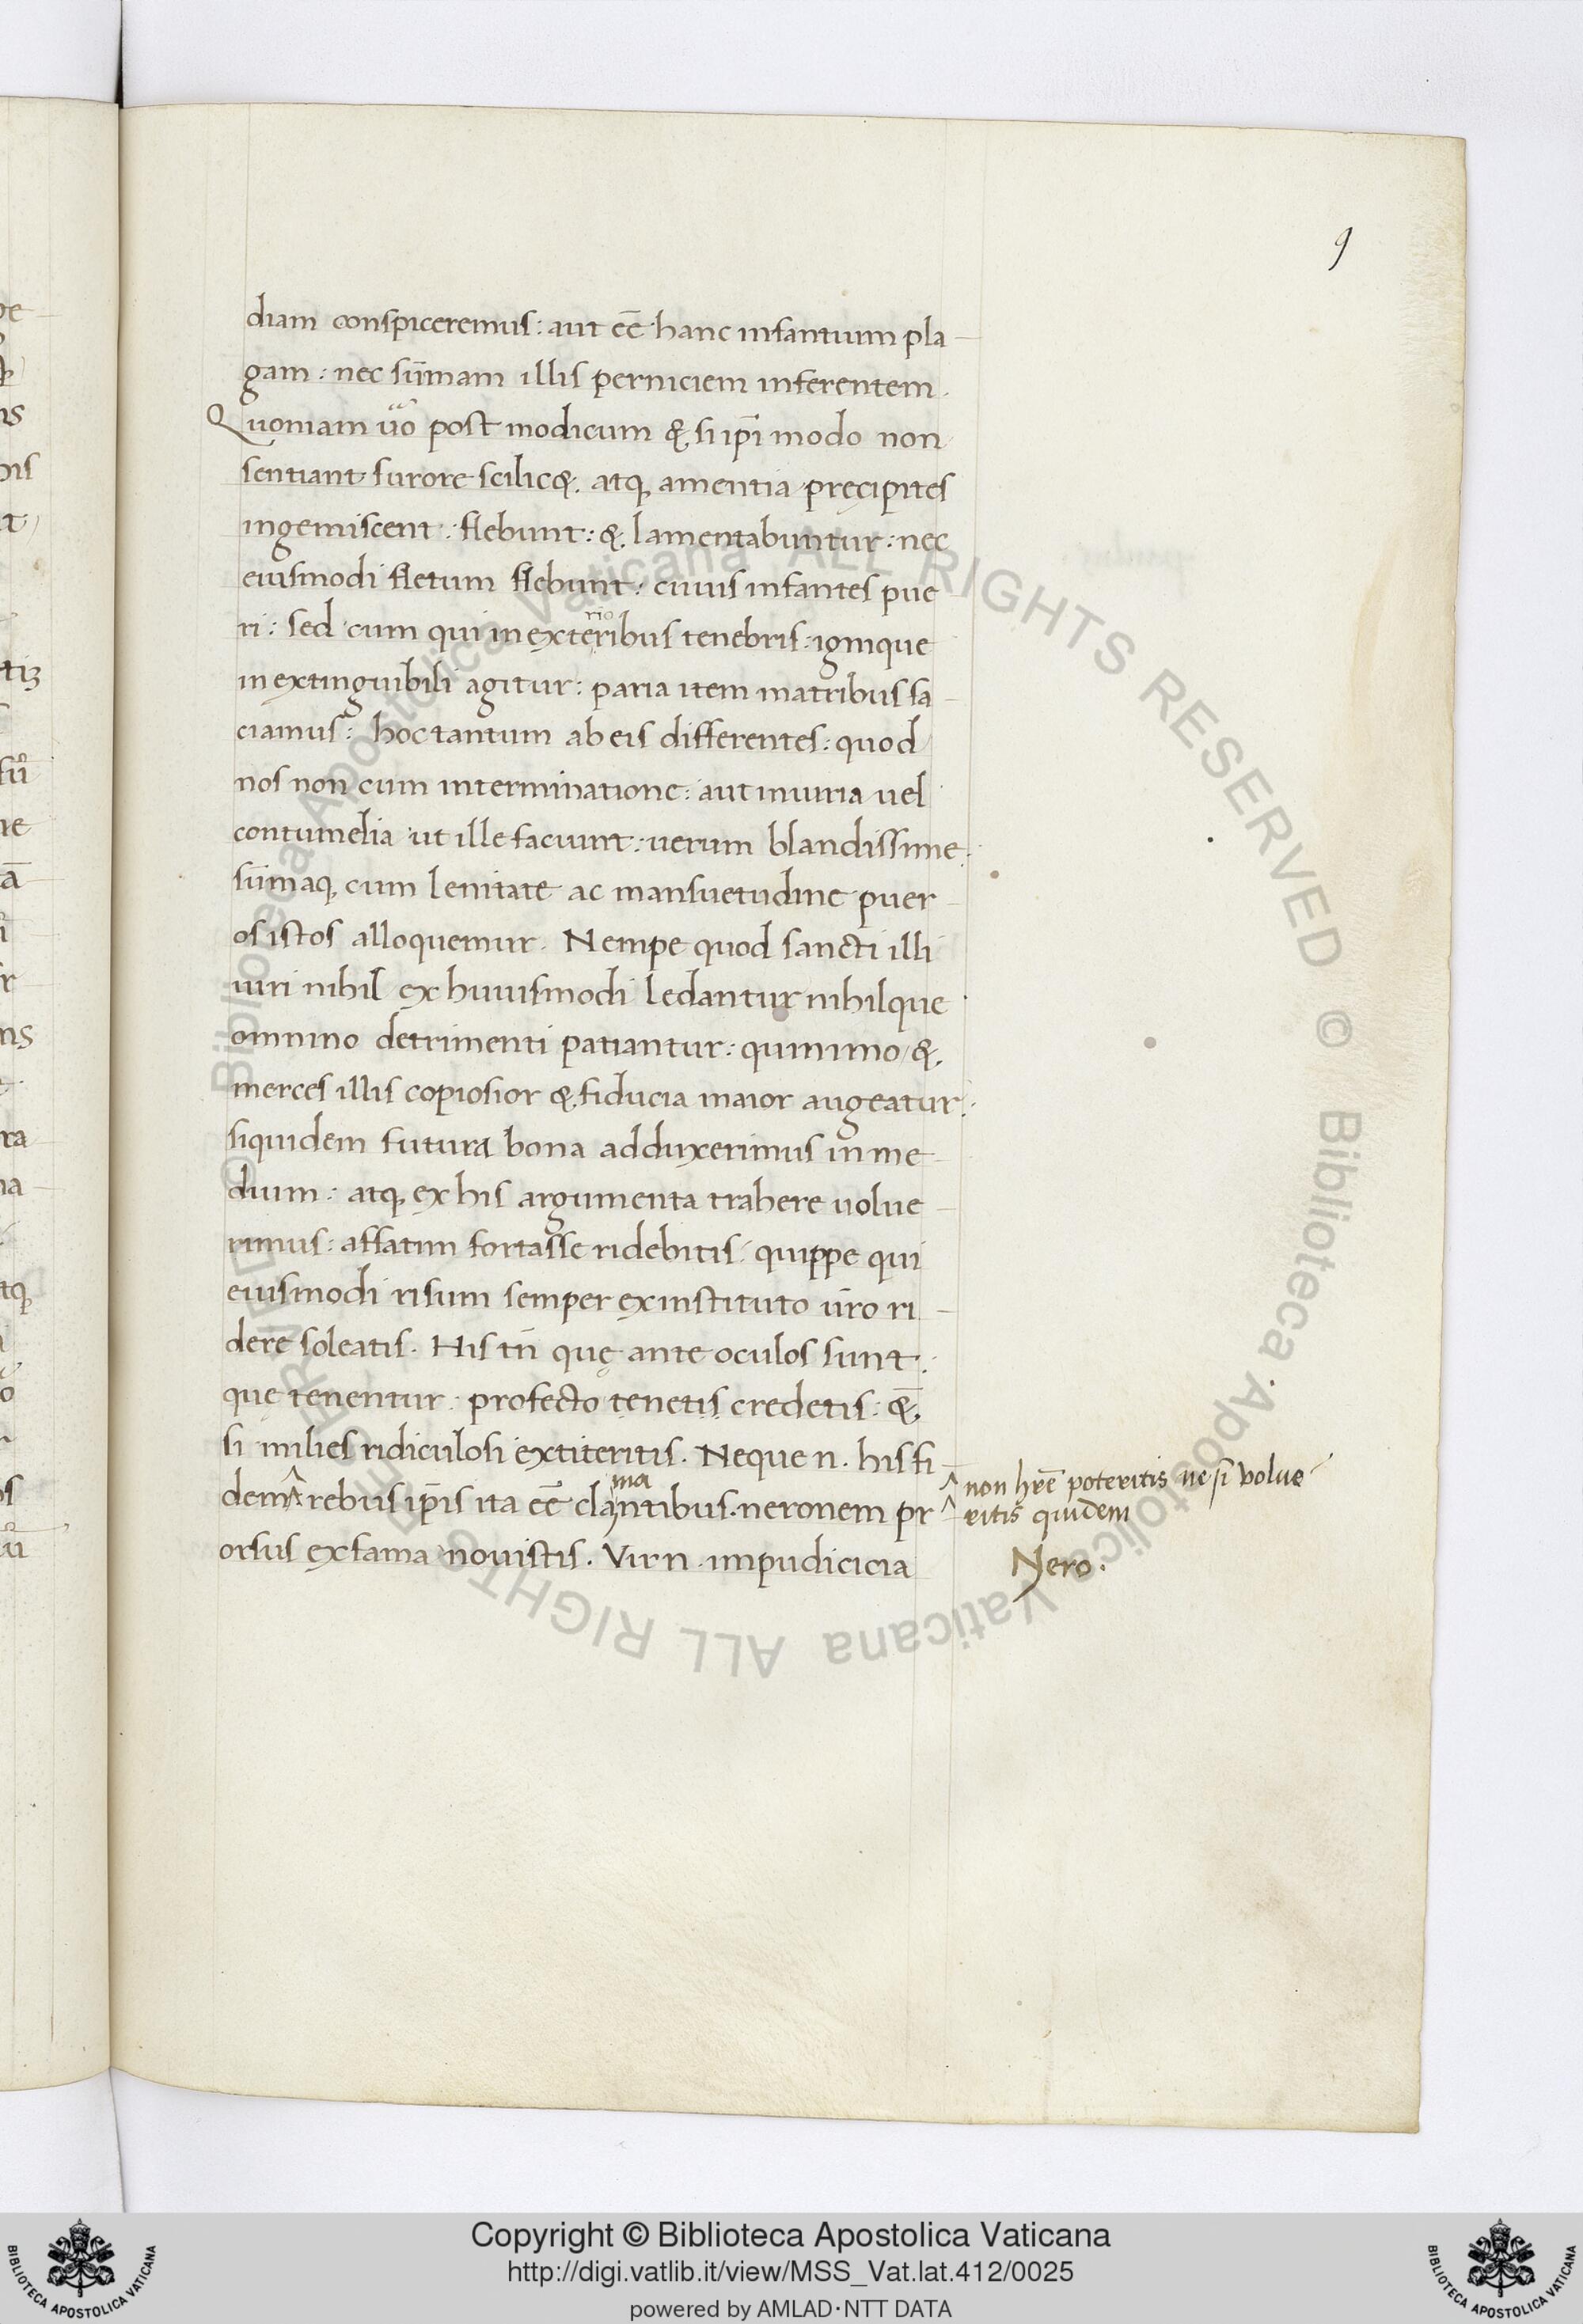 9
diam conspiceremus: aut eē hanc infantium pla
gam: nec sūmam illis perniciem inferentem.
Quoniam ūo post modicum & si ip̄i modo non
sentiant furore scilic& atq, amentia pręcipites
ingemiscent: flebunt: & lamentabuntur: nec
eiusmodi fletum flebunt: cuius infantes pue
ri: sed eum qui in exteriribus tenebris: ignique
rio
inextinguibili agitur: paria item matribus fa
ciamus: hoc tantum ab eis differentes: quod
nos non cum interminatione: aut iniuria uel
contumelia ut ille faciunt: uerum blandissime:
sūmaq, cum lenitate ac mansuetudine puer
os istos alloquemur. Nempe quod sancti illi
uiri nihil ex huiusmodi ledantur nihilque
omnino detrimenti patiantur: quinimo &
merces illis copiosior & fiducia maior augeatur:
siquidem futura bona adduxerimus in me
dium: atq, ex his argumenta trahere uolue
rimus: affatim fortasse ridebitis quippe qui
eiusmodi risum semper ex instituto ūro ri
dere soleatis. His tn̄ quę ante oculos sunt:
quę tenentur: profecto tenetis credetis: &
si milies ridiculosi extiteritis. Neque n. his fi
dem ^ rebus ip̄is ita eē clantibus. neronem pr
ma
^ non hr̄e poteritis ne si volue
^ ritis quidem
orsus ex fama nouistis. Vir n. impudicicia
Nero.
Copyright © Biblioteca Apostolica Vaticana
http://digi.vatlib.it/view/MSS_Vat.lat.412/0025
powered by AMLAD·NTT DATA